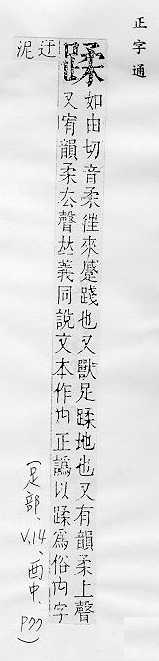 正字通
蹂如由切音柔徃來蹙踐也又獸足蹂地也又有韻柔上聲
又宥韻柔去聲𠀤義同說文本作禸正譌以蹂爲俗禸字
迂泥
(足部、V.14、酉中、P77)